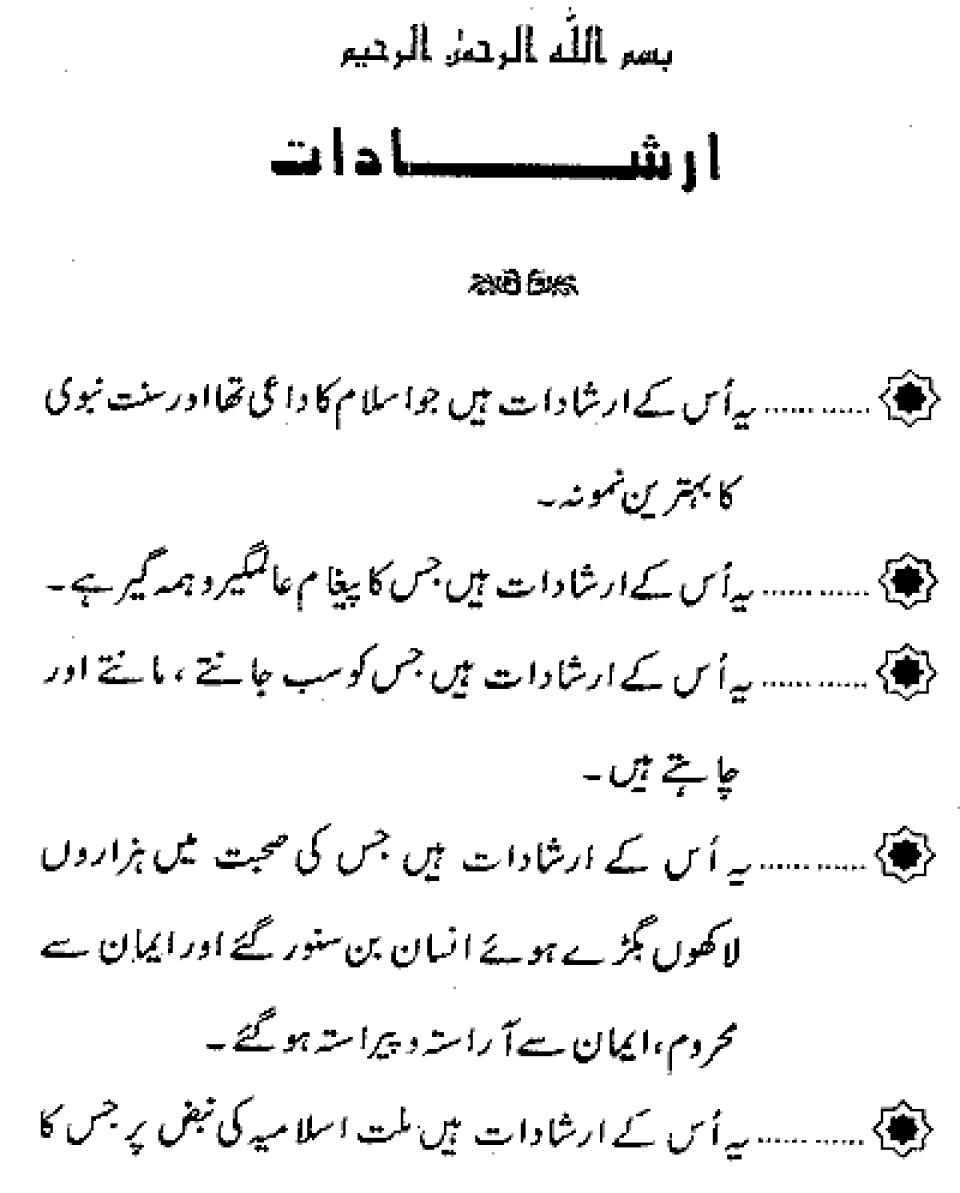 بسم اللہ الرحمٰن الرحیم
ارشادات
............ یہ اُس کے ارشادات ہیں جو اسلام کا داعی تھا اور سنت نبوی
کا بہترین نمونہ۔
............ یہ اُس کے ارشادات ہیں جس کا پیغام عالمگیر و ہمہ گیر ہے۔
............ یہ اُس کے ارشادات ہیں جس کو سب جانتے ، مانتے اور
چاہتے ہیں۔
............ یہ اُس کے ارشادات ہیں جس کی صحبت میں ہزاروں
لاکھوں بگڑے ہوئے انسان بن سنور گئے اور ایمان سے
محروم، ایمان سے آراستہ و پیراستہ ہو گئے۔
............ یہ اُس کے ارشادات ہیں ملت اسلامیہ کی نبض پر جس کا